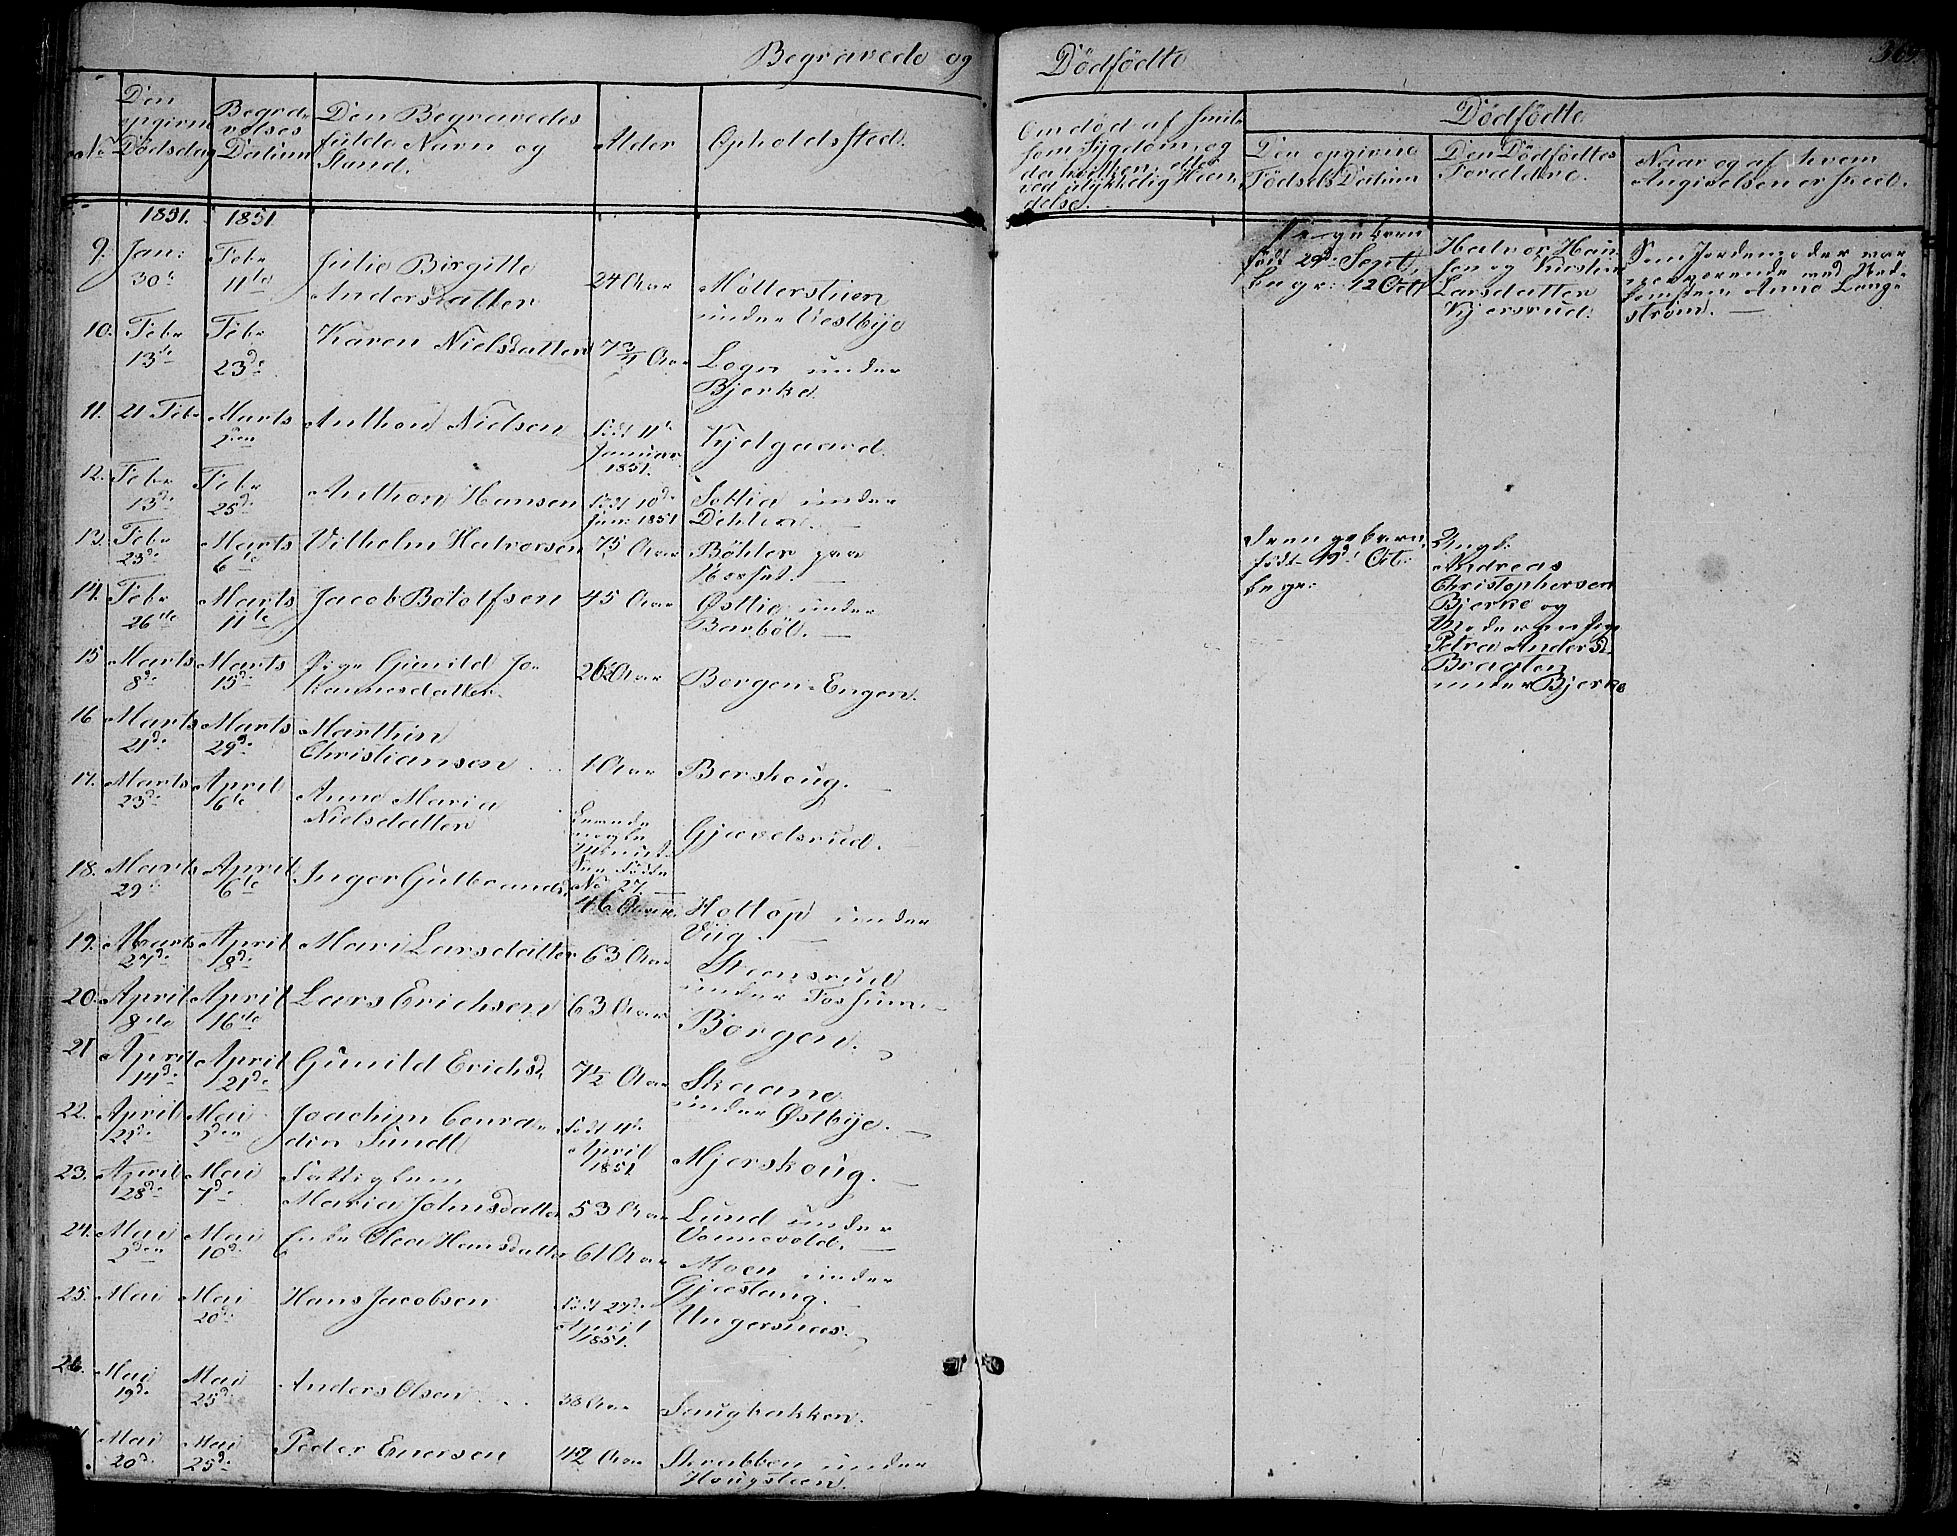 Begravede og Dödfödte
No
Den opgivne Dödsdag
Begravelses Datum
Den Begravedes fulde Navn og Stand.
Alder
Opholdssted.
Om död af smitsom Sygdom, og da hvilken, eller ved ulykkelig Hændelse.
Dödfödte
Den opgivne Födsels Datum
Den Dödfödtes Forældre.
Naar og af hvem Angivelsen er skeed.
1851. 1851
9. Jan: 30te Febr 11te Julie Birgitte Andersdatter 24 Aar Möllerstuen under Vestbye
10. Febr 13de Febr 23de Karen Nielsdatter Aar under Bjerke
11. 21 Febr Marts 2den Anthon Nielsen Födt 11te Januar 1851. Kjelgaard.
12. Febr 13de Febr 25de Anthon Hansen Födt 10de Jan: 1851 under Dehlin.
13. Febr 23de Marts 6te Vilhelm Halvorsen 75 Aar Böhler paa
14. Febr 26de Marts 11te Jacob Botolfsen 45 Aar Østlie under Barböl.
15 Marts 8de Marts 15de Pige Gunild Johannesdatter 26 Aar Borgen-Engen.
16 Marts 21de Marts 29de Marthin Christiansen 1 Aar Berskoug.
17. Marts 23de April 6te Anne Maria Nielsdatter nogle No 27. Gjævelsrud.
18. Marts 29de April 6te Inger Gulbrandsd 46 Aar. Holtop under Viig.
19. Marts 27de April 8de Mari Larsdatter 63 Aar Steensrud under Fossum
20. April 8de April 16de Lars Erichsen 63 Aar Borgen.
21 April 14de April 21de Gunild Erichsd 7½ Aar Skaane under Østbye.
22. April 25de Mai 2den Joachim Conradin Sundt Födt 4de April 1851 Mjerskoug.
23. April 28de Mai 7de Fattiglem Maria Johnsdatter 53 Aar Lund under Vonnevold.
24. Mai 2den Mai 10de Enke Olea Hansdatter 61 Aar Moen under Gjestang.
25. Mai Mai 20de Hans Jacobsen Födt 27de April 1851. Ungersnæs.
26. Mai 19de Mai 25de Anders Olsen 38 Aar Saugbakken.
Mai 20de Mai 25de Peder Enersen 42 Aar Skrubben under Hougsteen.
Pigebarn födt 29de Sept, begr: 12 Oct
Halvor Hansen og Kirstin Larsdatter Kjersrud.
Som Jordemoder var nærværende ved Anne Langeström.
Drengebarn födt 19de Oct: begr:
Ungk: Andreas Christophersen Bjerke og Moderen Pige Petra Andersd Bragten under Bjerke